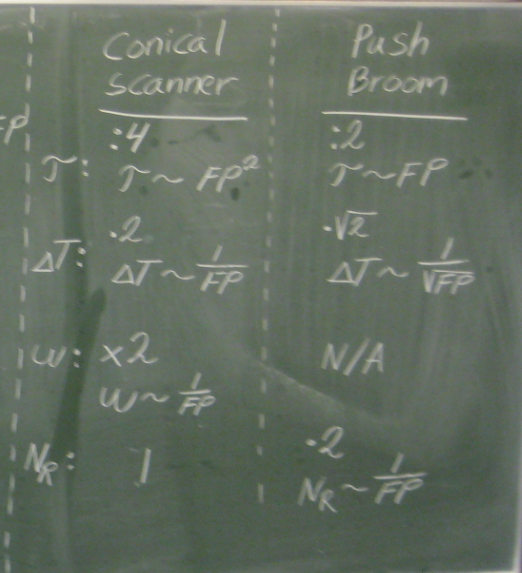 Conical Scanner
Push Broom
FP
:4
:2
τ: τ ~ FP²
τ ~ FP
·2
·√2
ΔT: ΔT ~ 1/FP
ΔT ~ 1/√FP
ω: ×2
N/A
ω ~ 1/FP
·2
N_R: 1
N_R ~ 1/FP